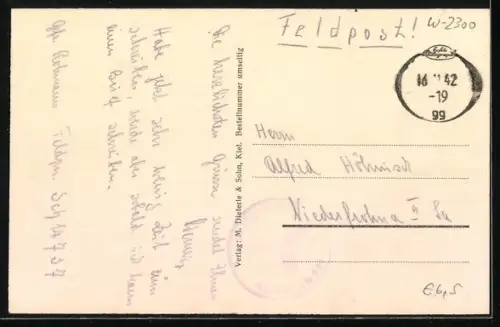 Feldpost! W-2300
16 11 42
-19
gg
Herrn
Alfred Höhnisch
Niederfrohna I Sa
€6,5
Verlag: M. Dieterle & Sohn, Kiel. Bestellnummer umseitig
Die herzlichsten Grüsse sendet Ihnen
Habe jetzt sehr wenig Zeit zum
schreiben, werde aber sobald ich kann
einen Brief schreiben.
Feldpn. Sch 14737